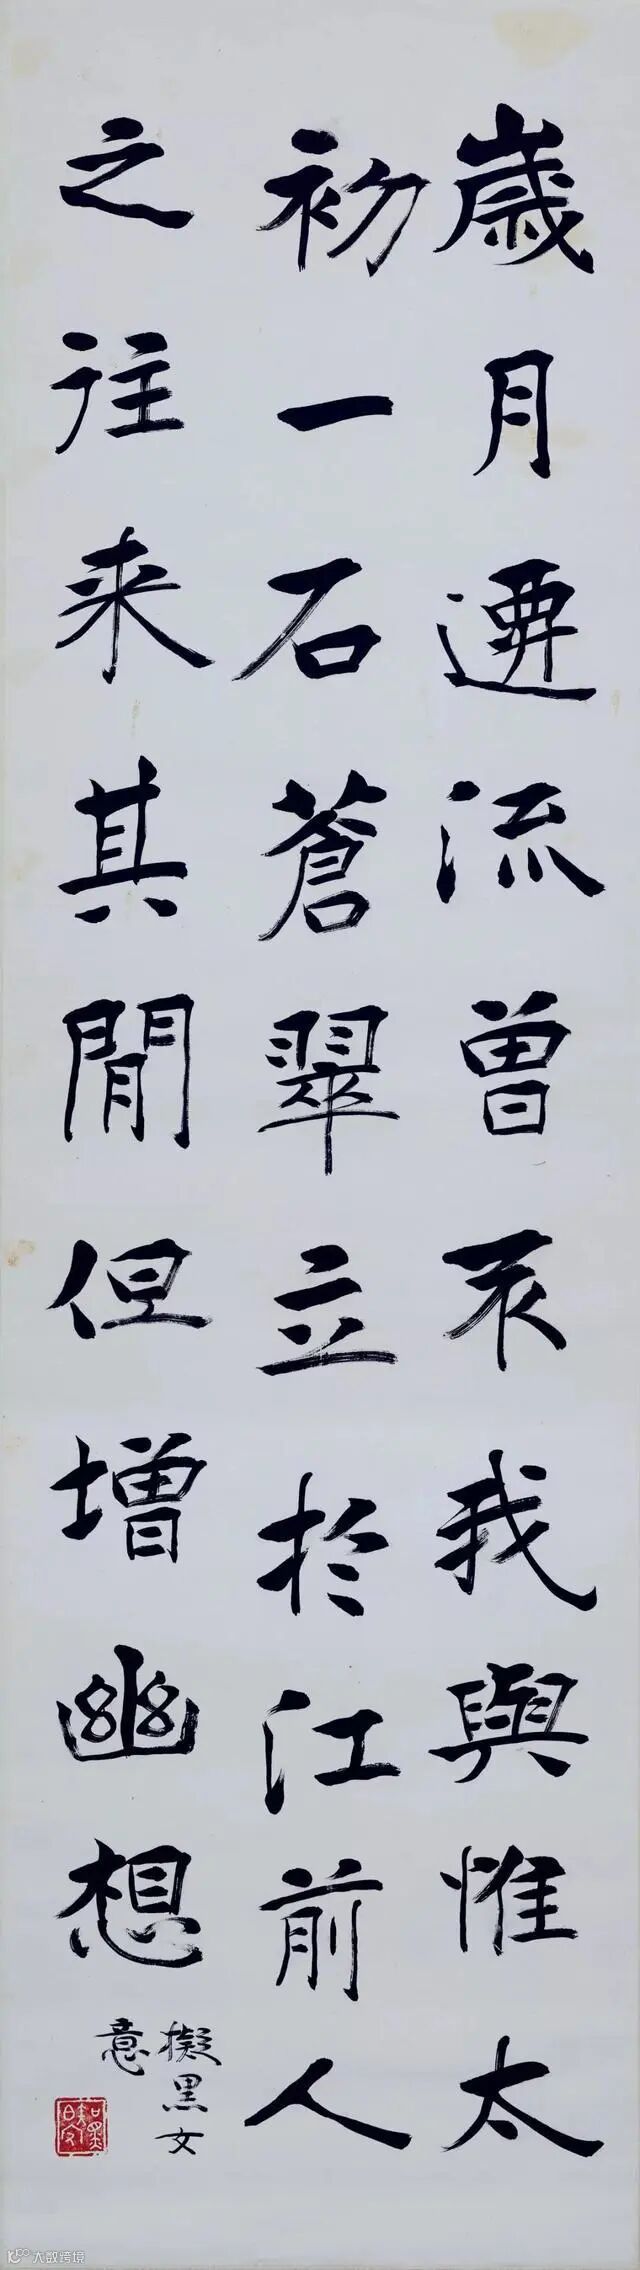 歲月遷流曾不我與惟太
初一石蒼翠立於江前人
之往来其閒但增幽想
擬黑女
意
大数跨境